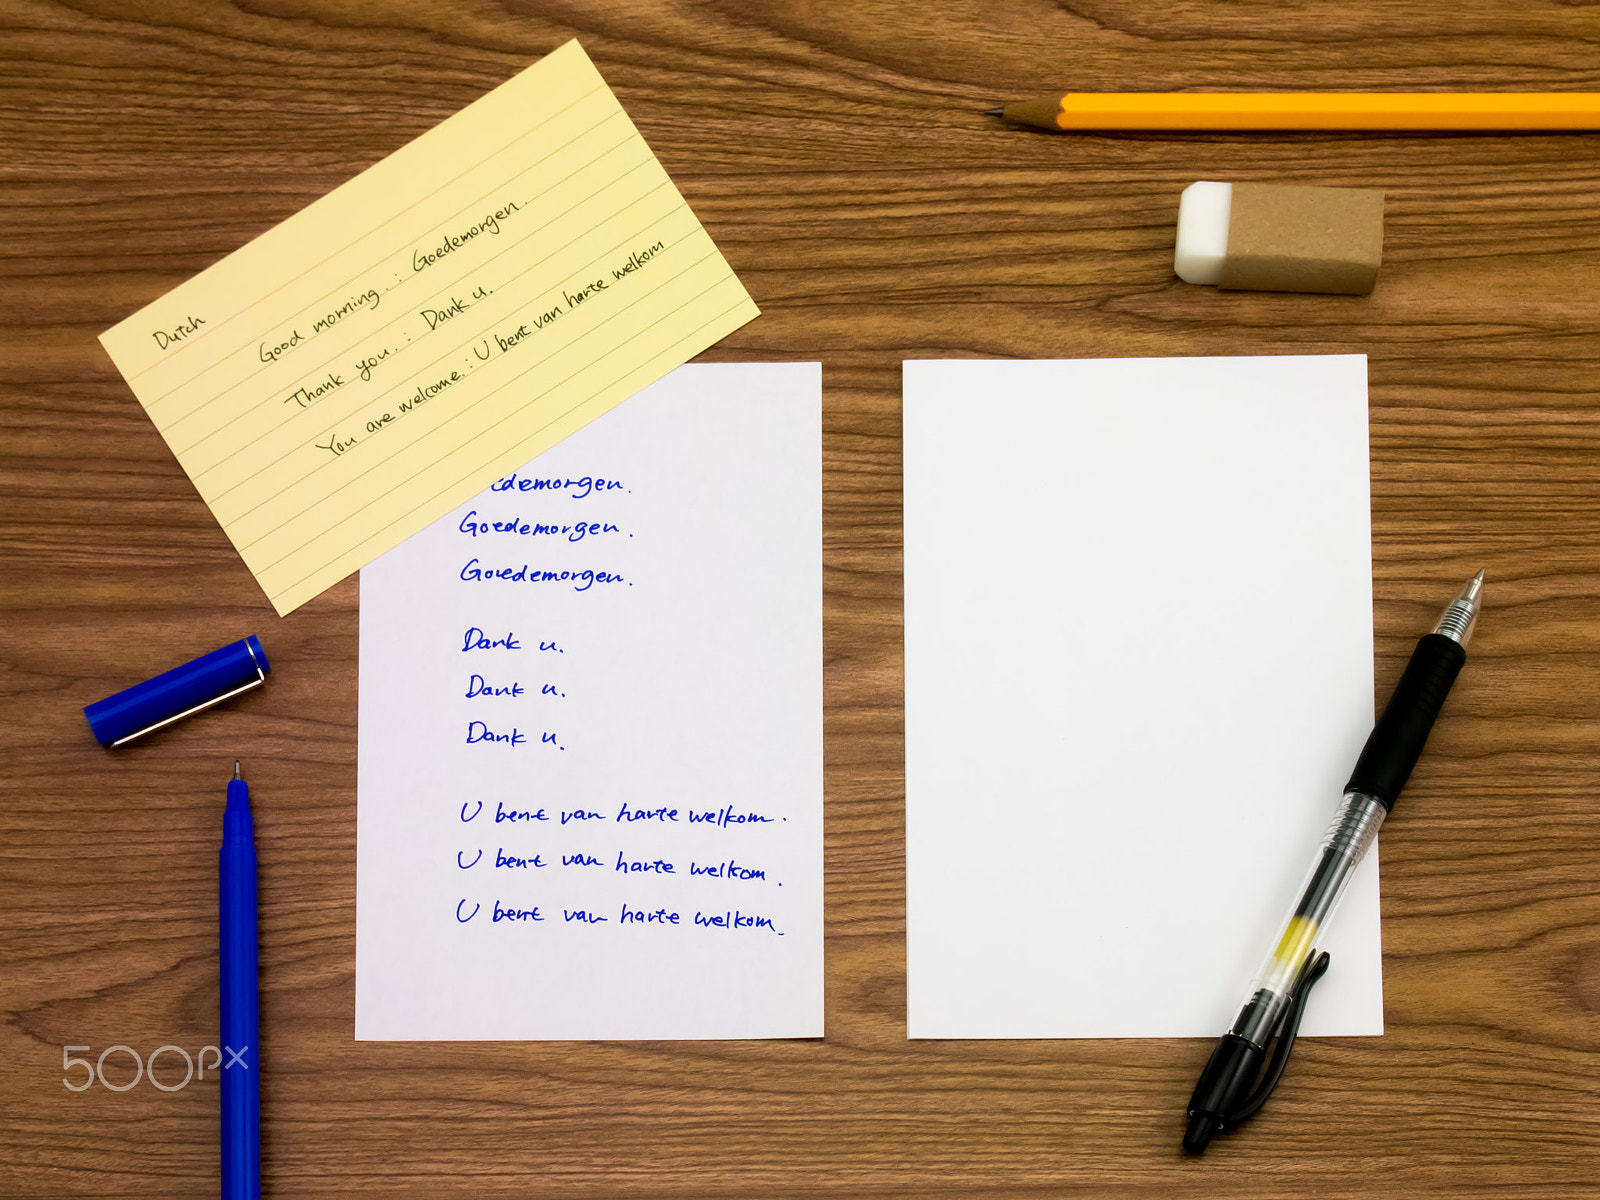 Dutch
Good morning. : Goedemorgen.
Thank you. : Dank u.
You are welcome. : U bent van harte welkom
edemorgen.
Goedemorgen.
Goedemorgen.
Dank u.
Dank u.
Dank u.
U bent van harte welkom.
U bent van harte welkom.
U bent van harte welkom.
500px